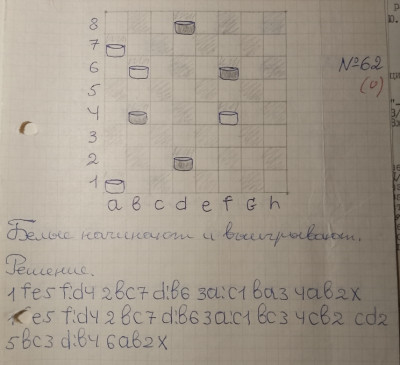 8
7
6
5
4
3
2
1
a b c d e f G h
№62
(0)
Белые начинают и выигрывают.
Решение.
1 fe5 f:d4 2 bc7 d:b6 3a:c1 ba3 4ab2x
1 fe5 f:d4 2 bc7 d:b6 3 a:c1 bc3 4cb2 cd2
5bc3 d:b4 6ab2x